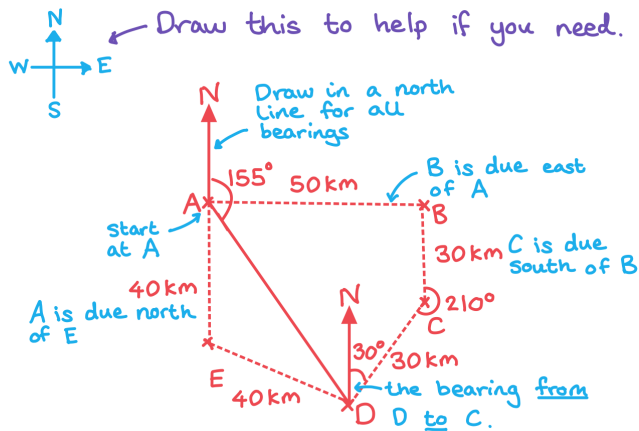 N
Draw this to help if you need.
W
E
S
N
Draw in a north
line for all
bearings
155°
50km
B is due east
of A
A
B
start
at A
30km
C is due
south of B
40km
A is due north
of E
N
210°
C
30°
30km
E
40km
D
the bearing from
D to C.